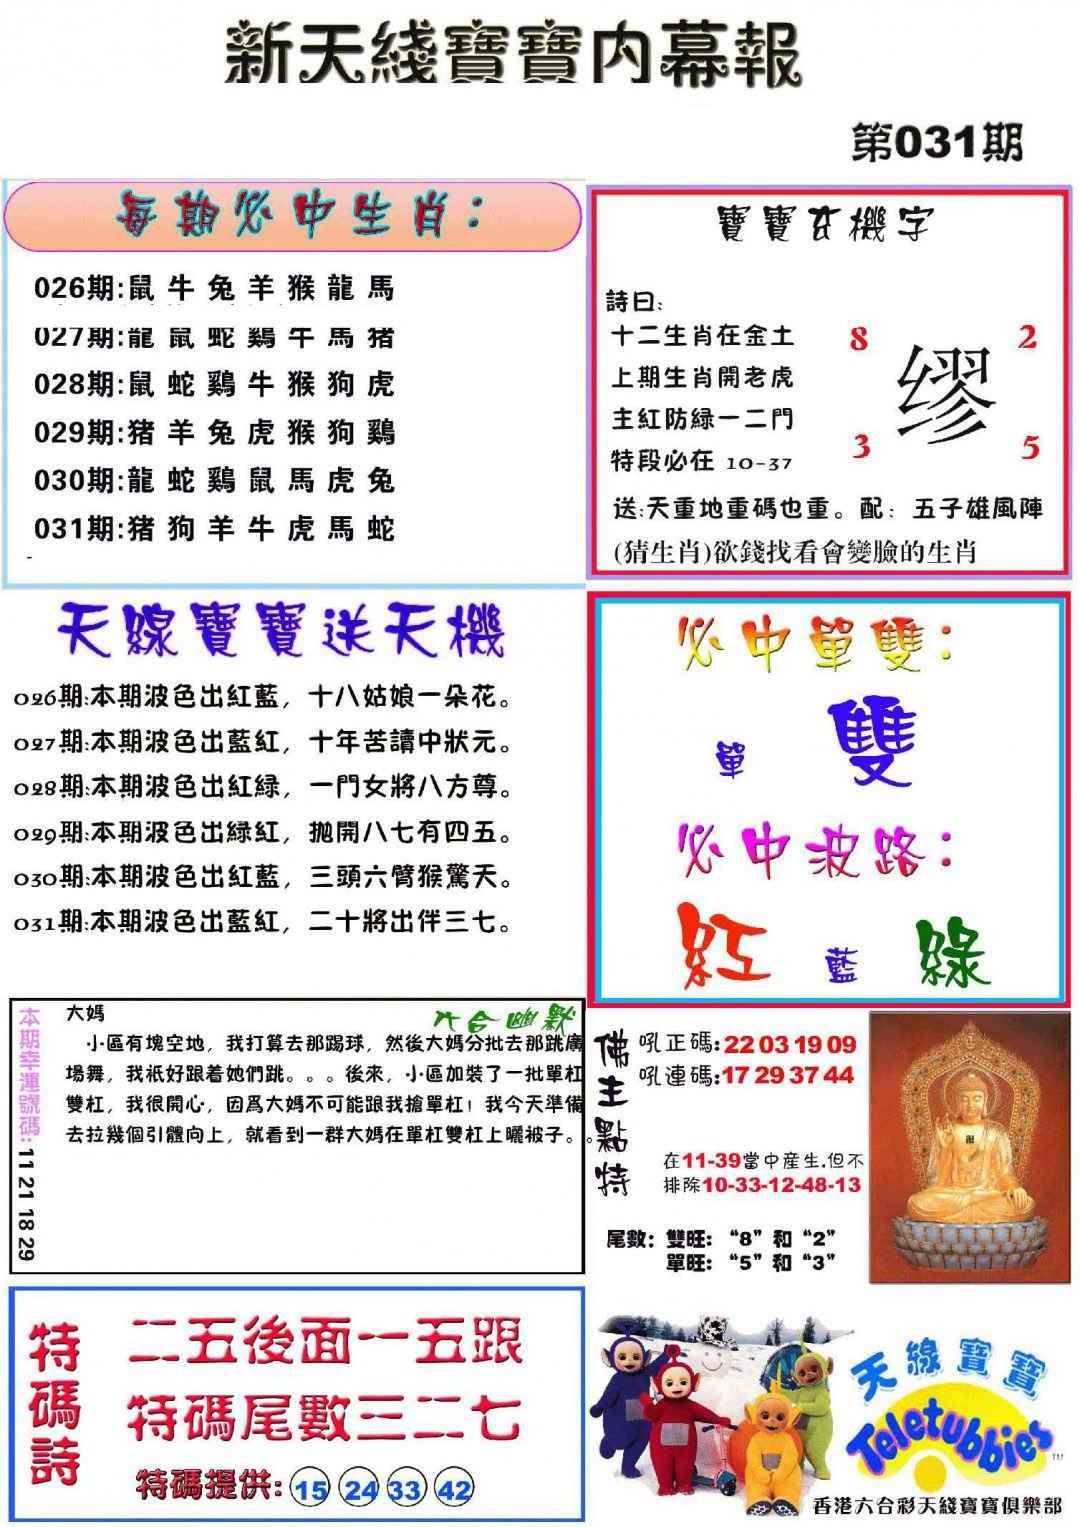 新天綫寶寶内幕報
第031期
每期必中生肖：
026期:鼠 牛 兔 羊 猴 龍 馬
027期:龍 鼠 蛇 鷄 牛 馬 猪
028期:鼠 蛇 鷄 牛 猴 狗 虎
029期:猪 羊 兔 虎 猴 狗 鷄
030期:龍 蛇 鷄 鼠 馬 虎 兔
031期:猪 狗 羊 牛 虎 馬 蛇
寶寶玄機字
詩曰:
十二生肖在金土
上期生肖開老虎
主紅防緑一二門
特段必在 10-37
8 2
缪
3 5
送:天重地重碼也重。配：五子雄風陣
(猜生肖)欲錢找看會變臉的生肖
天線寶寶送天機
026期:本期波色出紅藍，十八姑娘一朵花。
027期:本期波色出藍紅，十年苦讀中狀元。
028期:本期波色出紅緑，一門女將八方尊。
029期:本期波色出緑紅，抛開八七有四五。
030期:本期波色出紅藍，三頭六臂猴驚天。
031期:本期波色出藍紅，二十將出伴三七。
必中單雙：
單 雙
必中波路：
紅 藍 綠
本期幸運號碼:11 21 18 29
六合幽默
大媽
小區有塊空地，我打算去那踢球，然後大媽分批去那跳廣
場舞，我衹好跟着她們跳。。。後來，小區加裝了一批單杠
雙杠，我很開心，因爲大媽不可能跟我搶單杠！我今天準備
去拉幾個引體向上，就看到一群大媽在單杠雙杠上曬被子。。
佛主點特
吼正碼:22 03 19 09
吼連碼:17 29 37 44
在11-39當中産生.但不
排除10-33-12-48-13
尾數：雙旺：“8”和“2”
單旺：“5”和“3”
特碼詩
二五後面一五跟
特碼尾數三二七
特碼提供: 15 24 33 42
天線寶寶
Teletubbies
TM
香港六合彩天綫寶寶俱樂部